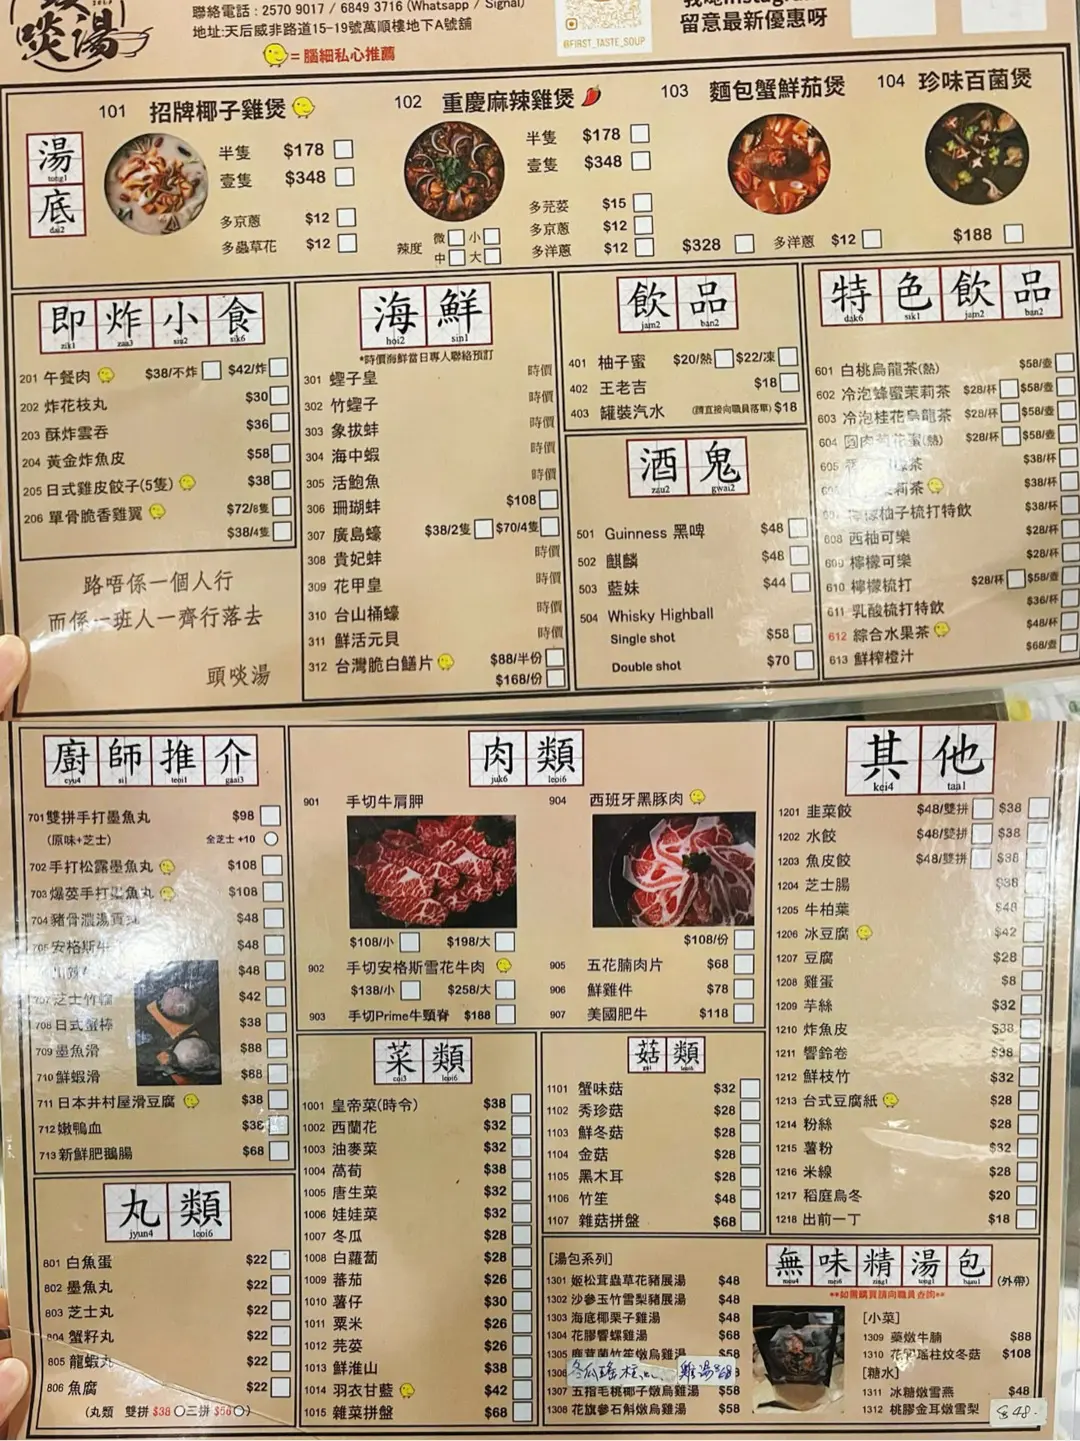 啖湯
聯絡電話 : 2570 9017 / 6849 3716 (Whatsapp / Signal)
地址:天后威非路道15-19號萬順樓地下A號舖
= 腦細私心推薦
@FIRST_TASTE_SOUP
留意最新優惠呀
湯底
tong1
dai2
101 招牌椰子雞煲
半隻 $178
壹隻 $348
多京蔥 $12
多蟲草花 $12
102 重慶麻辣雞煲
半隻 $178
壹隻 $348
多芫荽 $15
多京蔥 $12
多洋蔥 $12
辣度 微 小 中 大
103 麵包蟹鮮茄煲
$328
多洋蔥 $12
104 珍味百菌煲
$188
即炸小食
zik1 zaa3 siu2 sik6
201 午餐肉 $38/不炸 $42/炸
202 炸花枝丸 $30
203 酥炸雲吞 $36
204 黃金炸魚皮 $58
205 日式雞皮餃子(5隻) $38
206 單骨脆香雞翼 $72/8隻
$38/4隻
路唔係一個人行
而係一班人一齊行落去
頭啖湯
海鮮
hoi2 sin1
*時價海鮮當日專人聯絡預訂
301 蟶子皇 時價
302 竹蟶子 時價
303 象拔蚌 時價
304 海中蝦 時價
305 活鮑魚 時價
306 珊瑚蚌 $108
307 廣島蠔 $38/2隻 $70/4隻
308 貴妃蚌 時價
309 花甲皇 時價
310 台山桶蠔 時價
311 鮮活元貝 時價
312 台灣脆白鱔片 $88/半份
$168/份
飲品
jam2 ban2
401 柚子蜜 $20/熱 $22/凍
402 王老吉 $18
403 罐裝汽水 (請直接向職員落單) $18
酒鬼
zau2 gwai2
501 Guinness 黑啤 $48
502 麒麟 $48
503 藍妹 $44
504 Whisky Highball
Single shot $58
Double shot $70
特色飲品
dak6 sik1 jam2 ban2
601 白桃烏龍茶(熱) $58/壺
602 冷泡蜂蜜茉莉茶 $28/杯 $58/壺
603 冷泡桂花烏龍茶 $28/杯 $58/壺
604 肉 花蜜(熱) $28/杯 $58/壺
605 茶 $38/杯
茉莉茶 $38/杯
柚子梳打特飲 $38/杯
608 西柚可樂 $28/杯
609 檸檬可樂 $28/杯
610 檸檬梳打 $28/杯 $58/壺
611 乳酸梳打特飲 $36/杯
612 綜合水果茶 $48/杯
613 鮮榨橙汁 $68/壺
廚師推介
cyu4 si1 teoi1 gaai3
701 雙拼手打墨魚丸 $98
(原味+芝士) 全芝士 +10
702 手打松露墨魚丸 $108
703 爆荽手打墨魚丸 $108
704 豬骨濃湯貢丸 $48
705 安格斯牛 $48
$48
707 芝士竹輪 $42
708 日式蟹棒 $38
709 墨魚滑 $88
710 鮮蝦滑 $68
711 日本井村屋滑豆腐 $38
712 嫩鴨血 $38
713 新鮮肥鵝腸 $68
丸類
jyun4 leoi6
801 白魚蛋 $22
802 墨魚丸 $22
803 芝士丸 $22
804 蟹籽丸 $22
805 龍蝦丸 $22
806 魚腐 $22
(丸類 雙拼 $38 三拼 $56 )
肉類
juk6 leoi6
901 手切牛肩胛
$108/小 $198/大
902 手切安格斯雪花牛肉
$138/小 $258/大
903 手切Prime牛頸脊 $188
904 西班牙黑豚肉
$108/份
905 五花腩肉片 $68
906 鮮雞件 $78
907 美國肥牛 $118
菜類
coi3 leoi6
1001 皇帝菜(時令) $38
1002 西蘭花 $32
1003 油麥菜 $32
1004 萵荀 $38
1005 唐生菜 $32
1006 娃娃菜 $32
1007 冬瓜 $28
1008 白蘿蔔 $28
1009 蕃茄 $26
1010 薯仔 $30
1011 粟米 $26
1012 芫荽 $26
1013 鮮淮山 $38
1014 羽衣甘藍 $42
1015 雜菜拼盤 $68
菇類
gu1 leoi6
1101 蟹味菇 $32
1102 秀珍菇 $28
1103 鮮冬菇 $28
1104 金菇 $28
1105 黑木耳 $28
1106 竹笙 $48
1107 雜菇拼盤 $68
其他
kei4 taa1
1201 韭菜餃 $48/雙拼 $38
1202 水餃 $48/雙拼 $38
1203 魚皮餃 $48/雙拼 $38
1204 芝士腸 $38
1205 牛柏葉 $48
1206 冰豆腐 $42
1207 豆腐 $28
1208 雞蛋 $8
1209 芋絲 $32
1210 炸魚皮 $38
1211 響鈴卷 $38
1212 鮮枝竹 $32
1213 台式豆腐紙 $28
1214 粉絲 $28
1215 薯粉 $32
1216 米線 $28
1217 稻庭烏冬 $20
1218 出前一丁 $18
無味精湯包 (外帶)
mou4 mei6 zing1 tong1 baau1
**如需購買請向職員查詢**
[湯包系列]
1301 姬松茸蟲草花豬展湯 $48
1302 沙參玉竹雪梨豬展湯 $48
1303 海底椰栗子雞湯 $48
1304 花膠響螺雞湯 $68
1305 鹿茸菌竹笙燉烏雞湯 $58
1306 冬瓜瑤柱 雞湯 $68
1307 五指毛桃椰子燉烏雞湯 $58
1308 花旗參石斛燉烏雞湯 $58
[小菜]
1309 藥燉牛腩 $88
1310 花膠瑤柱炆冬菇 $108
[糖水]
1311 冰糖燉雪燕 $48
1312 桃膠金耳燉雪梨 $48